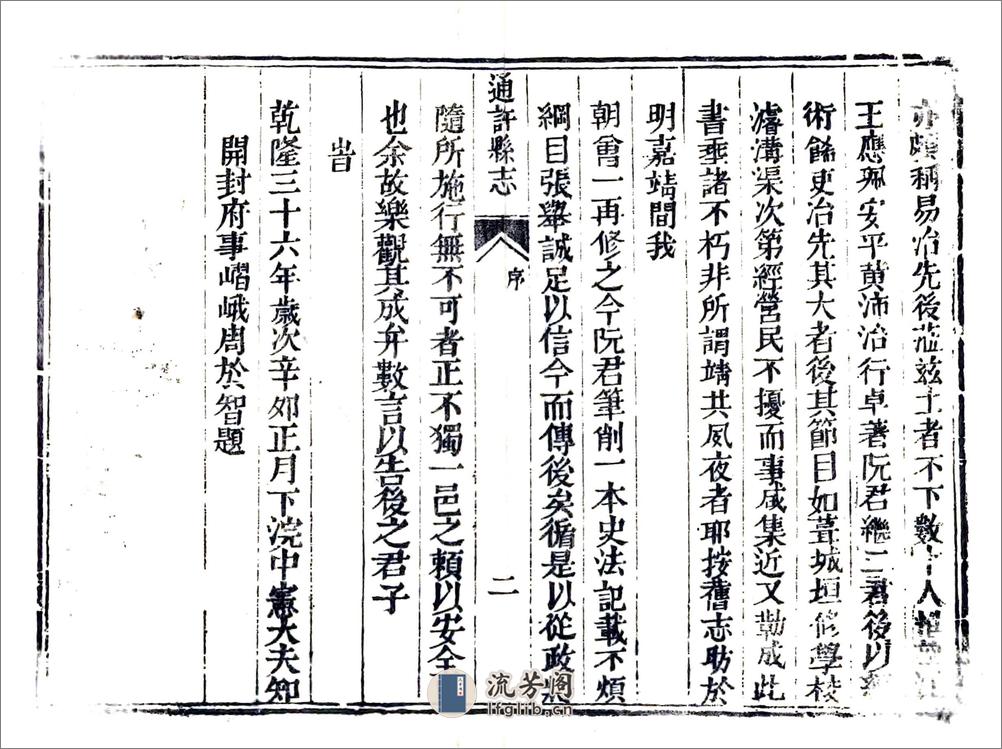 亦頗稱易治先後蒞兹土者不下數十人惟
王應珮安平黄沛治行卓著阮君繼二君後以
術飾吏治先其大者後其節目如葺城垣修學校
濬溝渠次第經營民不擾而事咸集近又勒成此
書垂諸不朽非所謂靖共夙夜者耶按舊志昉於
明嘉靖間我
朝曾一再修之今阮君筆削一本史法記載不煩
綱目張舉誠足以信今而傳後矣循是以從政
通許縣志
序
二
隨所施行無不可者正不獨一邑之賴以安全
也余故樂觀其成弁數言以告後之君子
旹
乾隆三十六年歲次辛夘正月下浣中憲大夫知
開封府事嶍峨周於智題
流芳阁
lfglib.cn